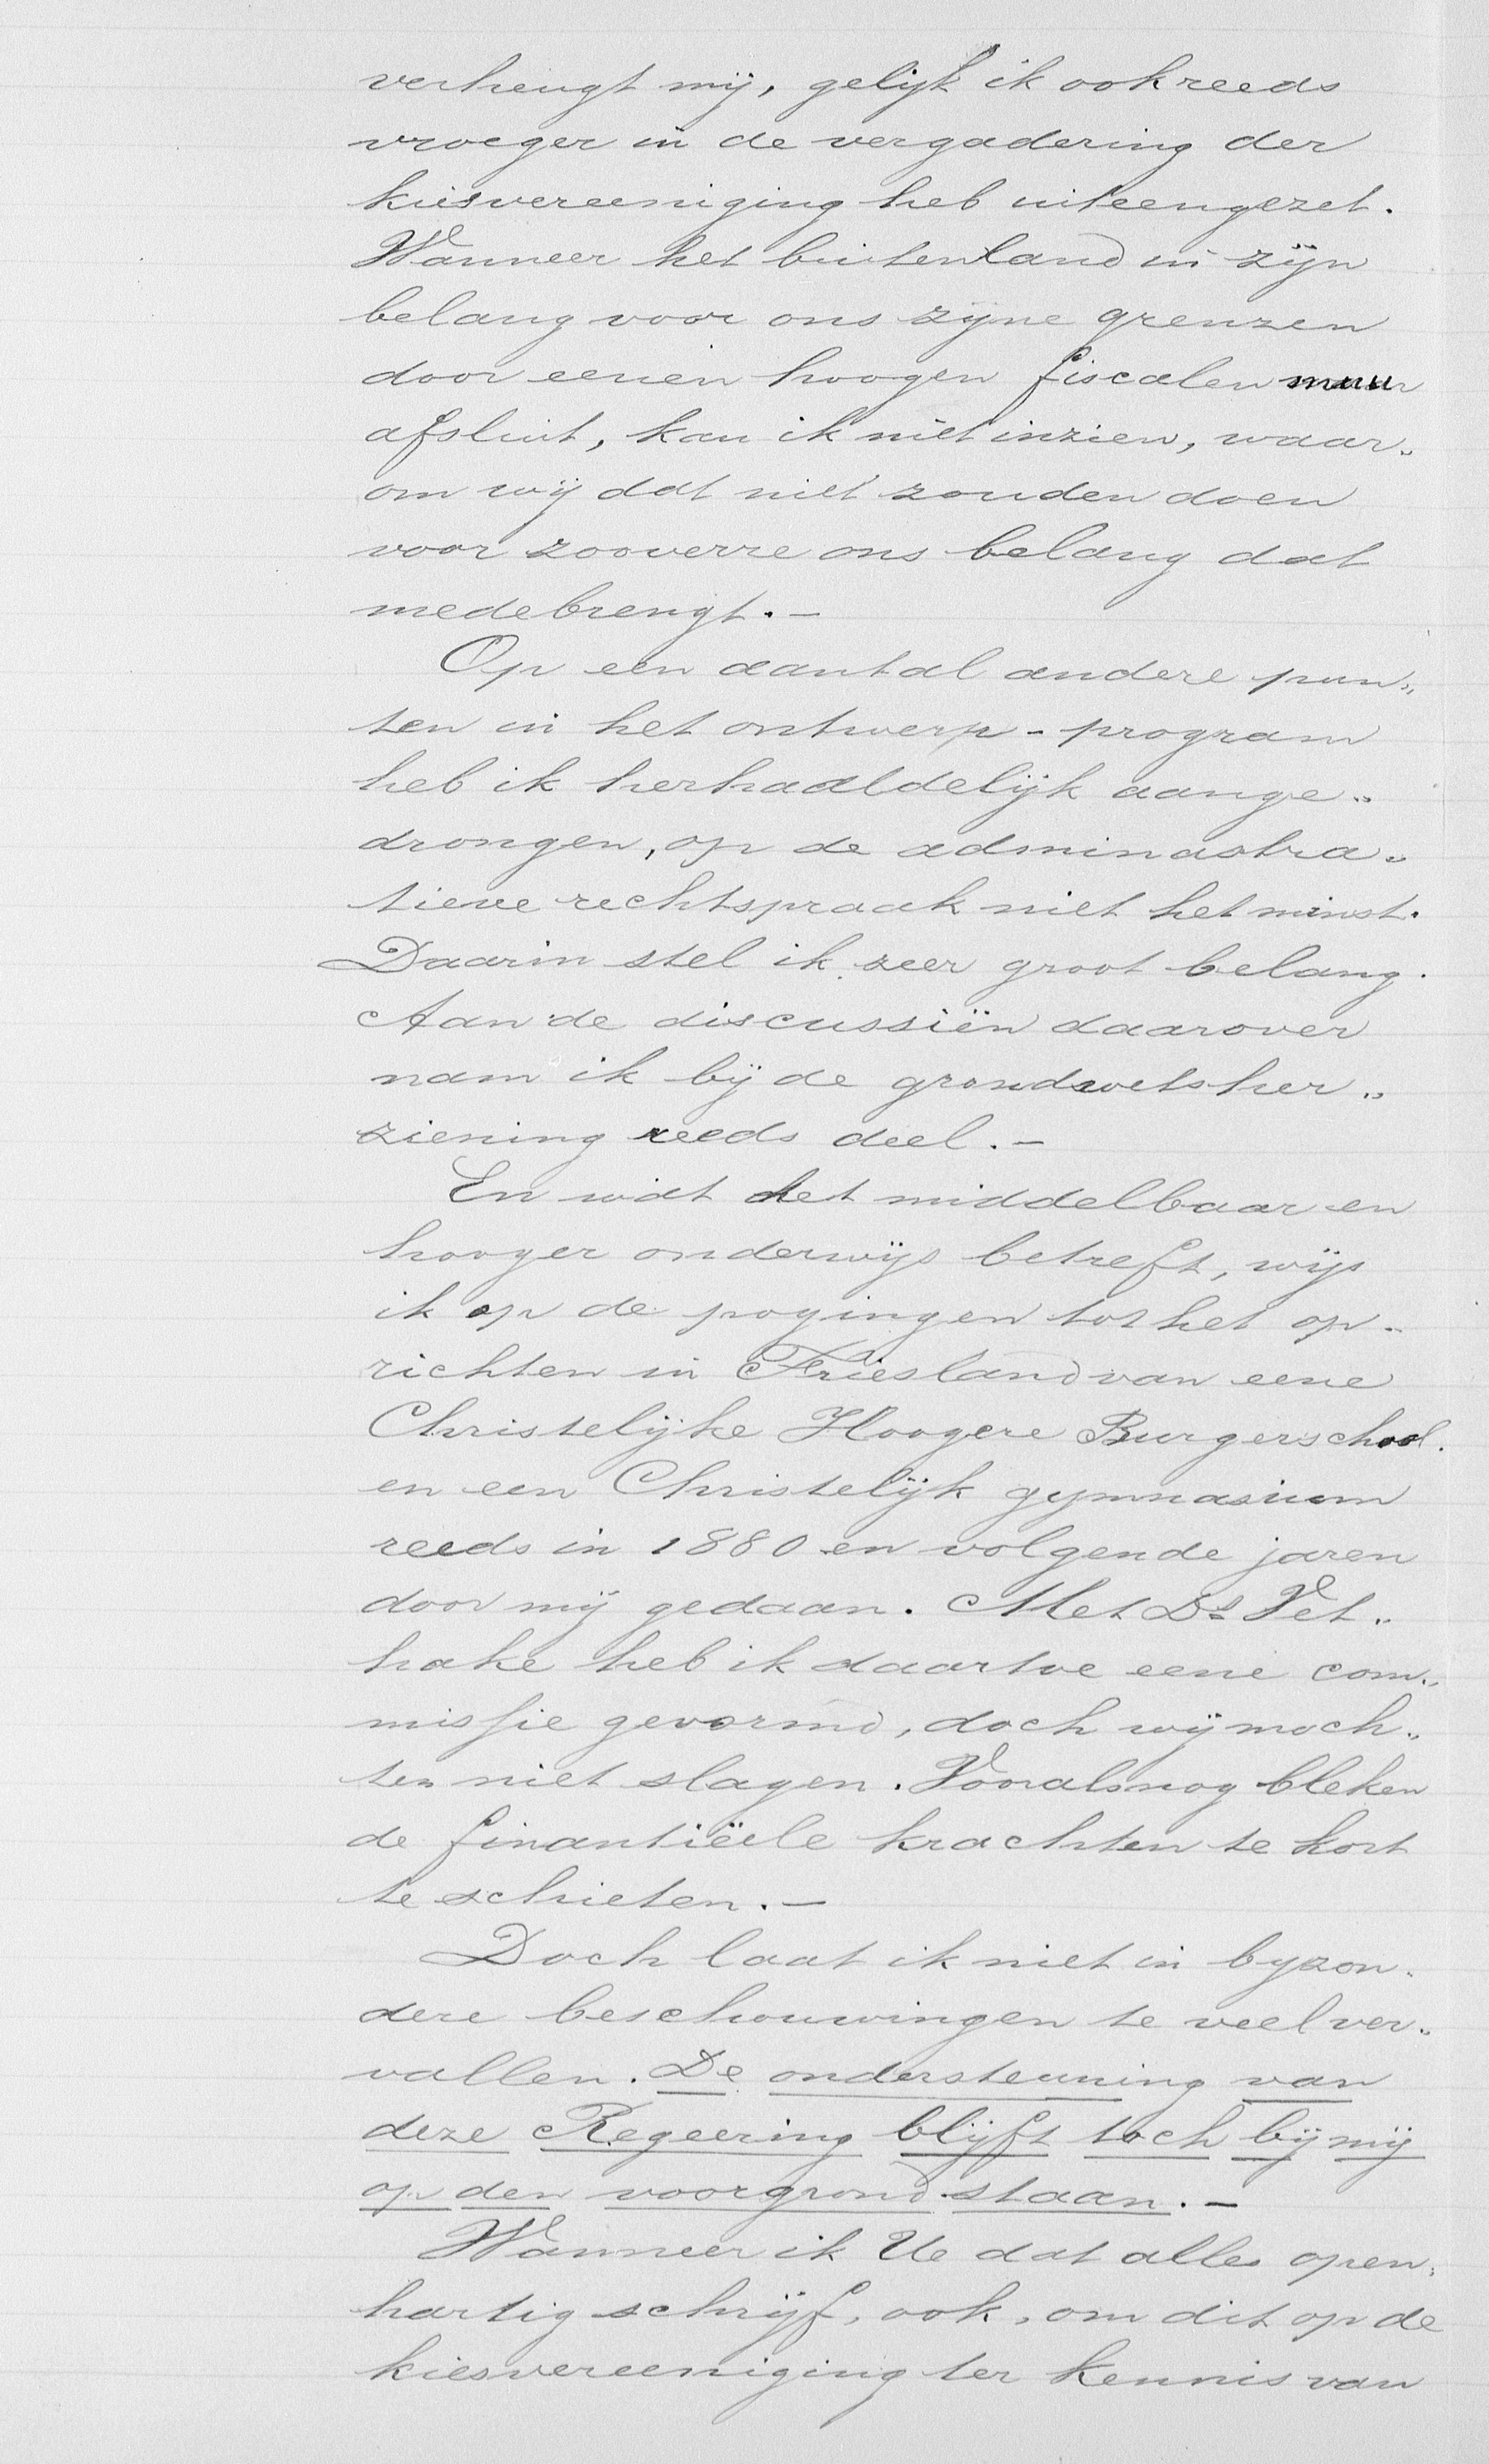 verheugt mij, gelijk ik ook reeds
vroeger in de vergadering der
kiesvereeniging heb uiteengezet.
Wanneer het buitenland in zijn
belang voor ons zijne grenzen
door eenen hoogen fiscalen muur
afsluit, kan ik niet inzien, waar„
om wij dat niet zouden doen
voor zooverre ons belang dat
medebrengt. –
Op een aantal andere pun„
ten in het ontwerp - program
heb ik herhaaldelijk aange„
drongen, op de adminastra„
tieve rechtspraak niet het minst.
Daarin stel ik zeer groot belang.
Aan de discussiën daarover
nam ik bij de grondwetsher„
ziening reeds deel. –
En wat het middelbaar en
hooger onderwijs betreft, wijs
ik op de pogingen tot het op-
richten in Friesland van eene
Christelijke Hoogere Burgerschool.
en een Christelijk gymnasium
reeds in 1880 en volgende jaren
door mij gedaan. Met Ds Vet„
hake heb ik daartoe eene com„
missie gevormd, doch wij moch„
ten niet slagen. Vooralsnog bleken
de finantiëele krachten te kort
te schieten. –
Doch laat ik niet in byzon-
dere beschouwingen te veel ver„
vallen. De ondersteuning van
deze Regeering blijft toch bij mij
op den voorgrond staan. –
Wanneer ik Ue dat alles open„
hartig schrijf, ook, om dit op de
kiesvereeniging ter kennis van